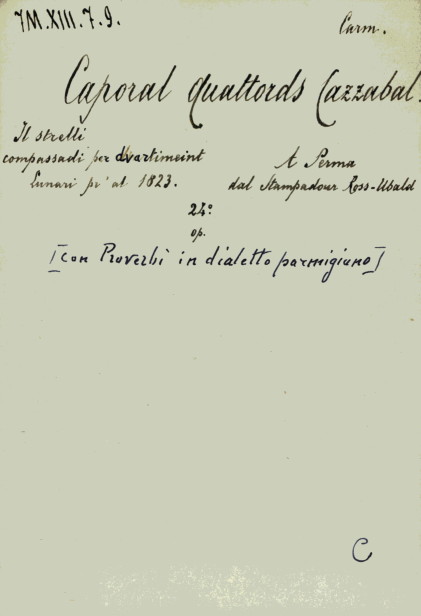 7M.XIII.7.9.
Carm.
Caporal Quattords Cazzabal.
Il strelli
compassadi per dvartimeint
Lunari pr' al 1823.
A Perma
dal Stampadour Ross-Ubald
24°
op.
[con Proverbi in dialetto parmigiano]
C